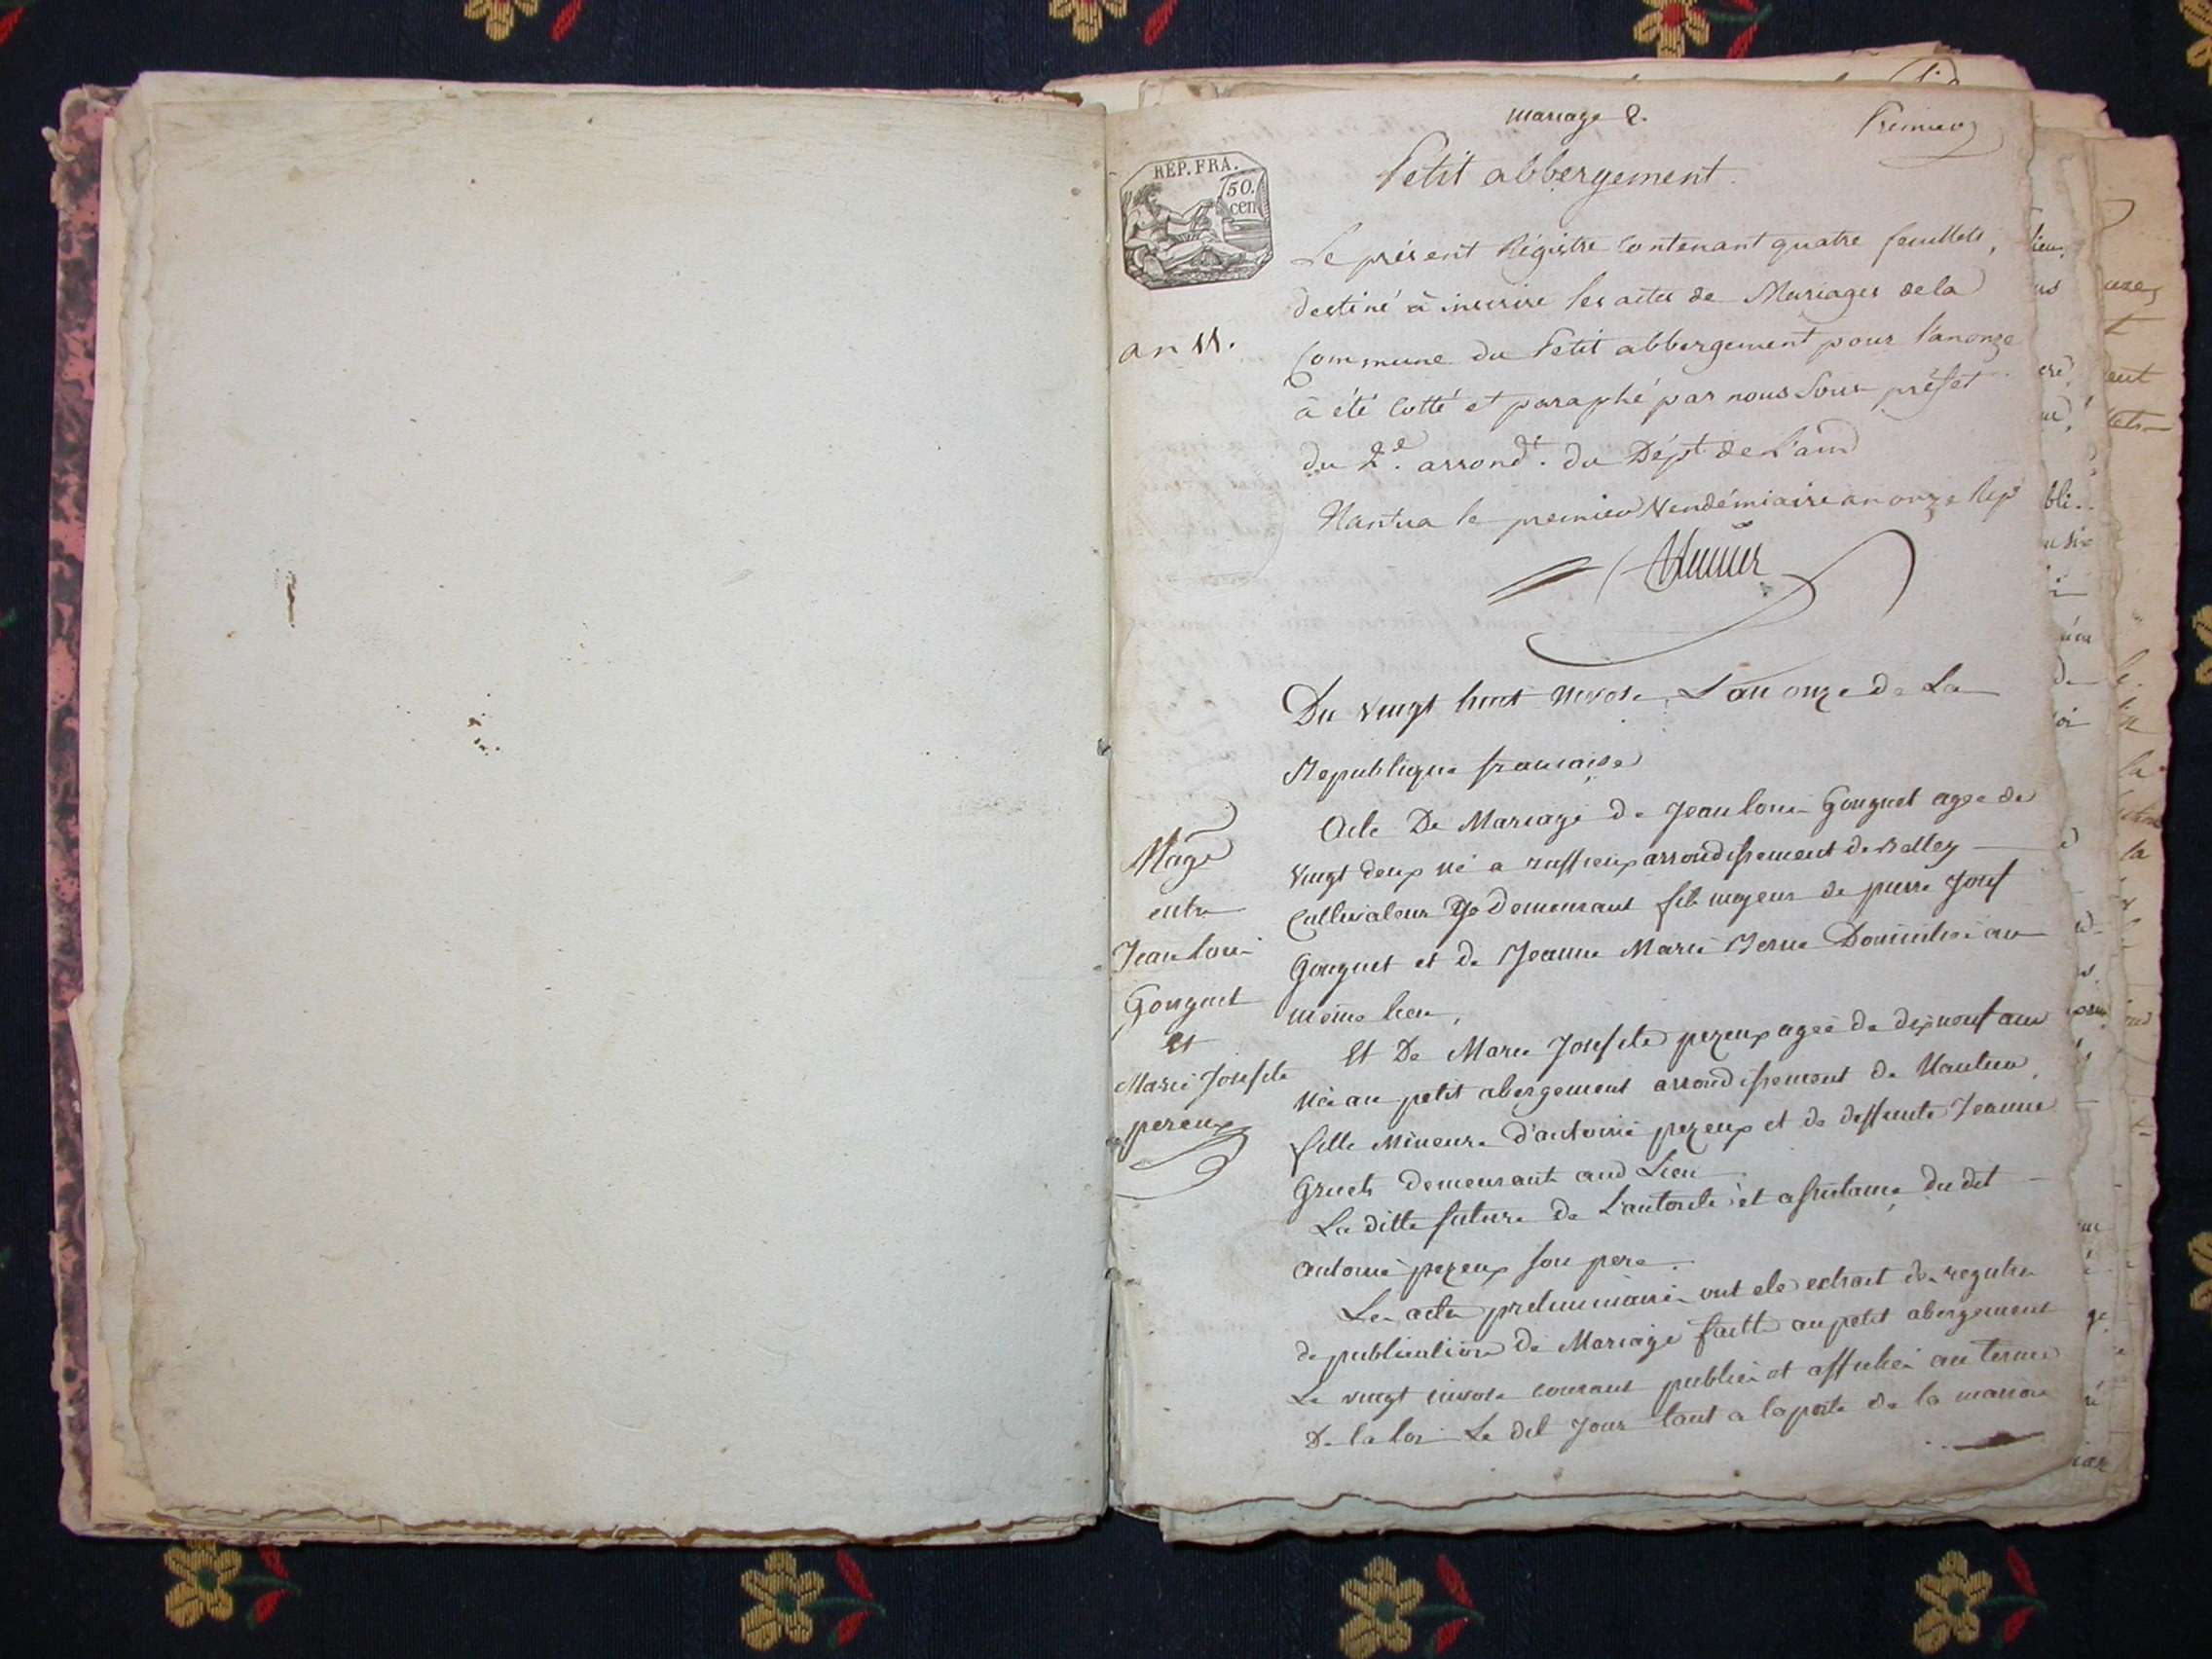 mariage 2.
Premier
REP. FRA.
50.
cen
Petit abbergement.
Le présent Régistre Contenant quatre feuillets,
destiné à inscrire les actes de Mariages de la
an 11.
Commune du Petit abbergement pour l'an onze
à été Cotté et paraphé par nous Sous-préfet
du 2e. arrond.t du Dép.t de L'ain
Nantua le premier Vendémiaire an onze Rep
Du vingt huit nivose L'an onze de La
Republique francaise
Acte De Mariage de Jean loui Gouguet agee de
vingt deux né a ruffieux arrondissement de Belley
Cultivateur y demeurant fils de pierre Josef
Gouguet et de Jeanne Marie Domicilié au
même lieu,
Mage
entre
Jean loui
Gouguet
et
Marie Josefte
pezeux
Et De Marie Josefte pezeux agée de dixneuf ans
Née au petit abergement arrondissement de Nantua,
fille Mineure d'antoine pezeux et de deffunte Jeanne
Gruet demeurant aud Lieu
La ditte future de L'autorité et assistance du dit
antoine pezeux son pere.
Les acte preliminaire ont ete extrait des registre
de publication de Mariage faitte au petit abergement
Le vingt nivose courant publiée et affichée au terme
De la loi Le dit Jour tant a la porte de la maison